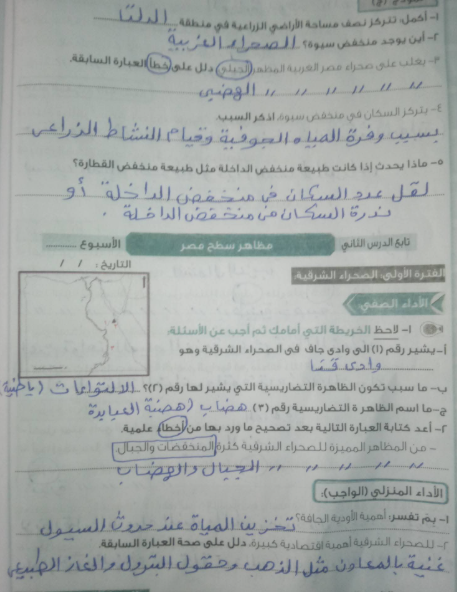 ١- أكمل: تتركز نصف مساحة الأراضي الزراعية في منطقة الدلتا
٢- أين يوجد منخفض سيوة؟ الصحراء الغربية
٣- يغلب على صحراء مصر الغربية المظهر الجبلي دلل على خطأ العبارة السابقة.
" " " " " " الهضبي
٤- يتركز السكان في منخفض سيوة، اذكر السبب.
بسبب وفرة المياه الجوفية وقيام النشاط الزراعى
٥- ماذا يحدث إذا كانت طبيعة منخفض الداخلة مثل طبيعة منخفض القطارة؟
لقل عدد السكان في منخفض الداخلة أو
ندرة السكان من منخفض الداخلة.
تابع الدرس الثاني مظاهر سطح مصر الأسبوع
التاريخ: / /
الفترة الأولى: الصحراء الشرقية:
الأداء الصفي:
١- لاحظ الخريطة التي أمامك ثم أجب عن الأسئلة:
أ- يشير رقم (١) الى وادى جاف فى الصحراء الشرقية وهو
وادى قنا
ب- ما سبب تكون الظاهرة التضاريسية التي يشير لها رقم (٢)؟ الالتواءات (باطنية)
ج- ما اسم الظاهرة التضاريسية رقم (٣) هضاب (هضبة العبابدة
٢- أعد كتابة العبارة التالية بعد تصحيح ما ورد بها من أخطاء علمية.
- من المظاهر المميزة للصحراء الشرقية كثرة المنخفضات والجبال.
" " " " " " الجبال والهضاب
الأداء المنزلي (الواجب):
١- بم تفسر: أهمية الأودية الجافة؟ تخزين المياة عند حدوث السيول
٢- للصحراء الشرقية أهمية اقتصادية كبيرة. دلل على صحة العبارة السابقة.
غنية بالمعادن مثل الذهب وحقول البترول والغاز الطبيعي